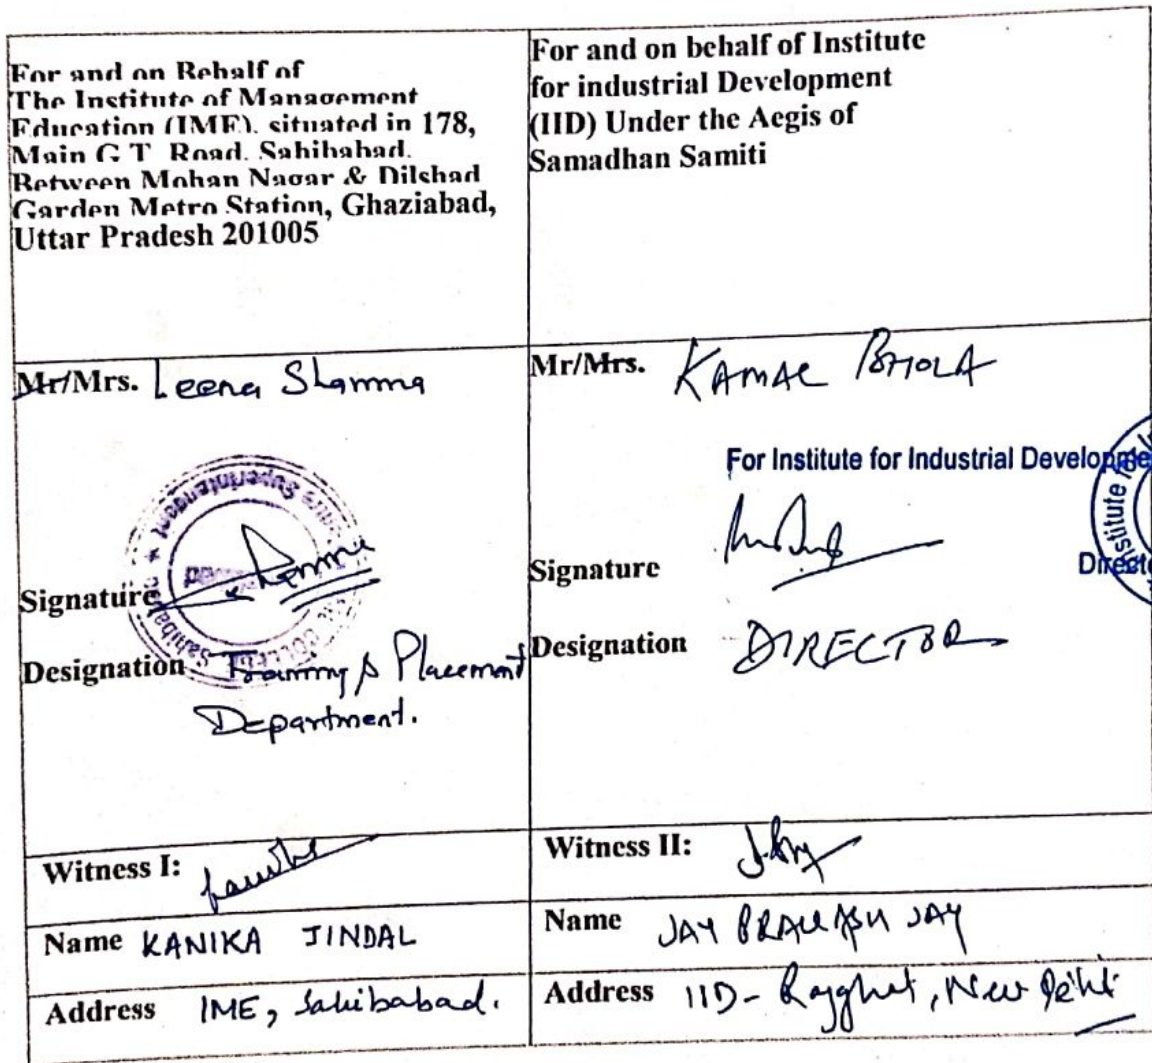 For and on Behalf of
The Institute of Management
Education (IME), situated in 178,
Main G.T. Road, Sahibabad,
Between Mohan Nagar & Dilshad
Garden Metro Station, Ghaziabad,
Uttar Pradesh 201005
For and on behalf of Institute
for industrial Development
(IID) Under the Aegis of
Samadhan Samiti
Mr/Mrs. Leena Sharma
Signature
Designation Training & Placement
Department.
Mr/Mrs. KAMAL BHOLA
For Institute for Industrial Developme
Signature
Directo
Designation DIRECTOR
Witness I:
Witness II:
Name KANIKA JINDAL
Name JAY PRAKASH JAY
Address IME, Sahibabad.
Address IID - Rajghat, New Delhi